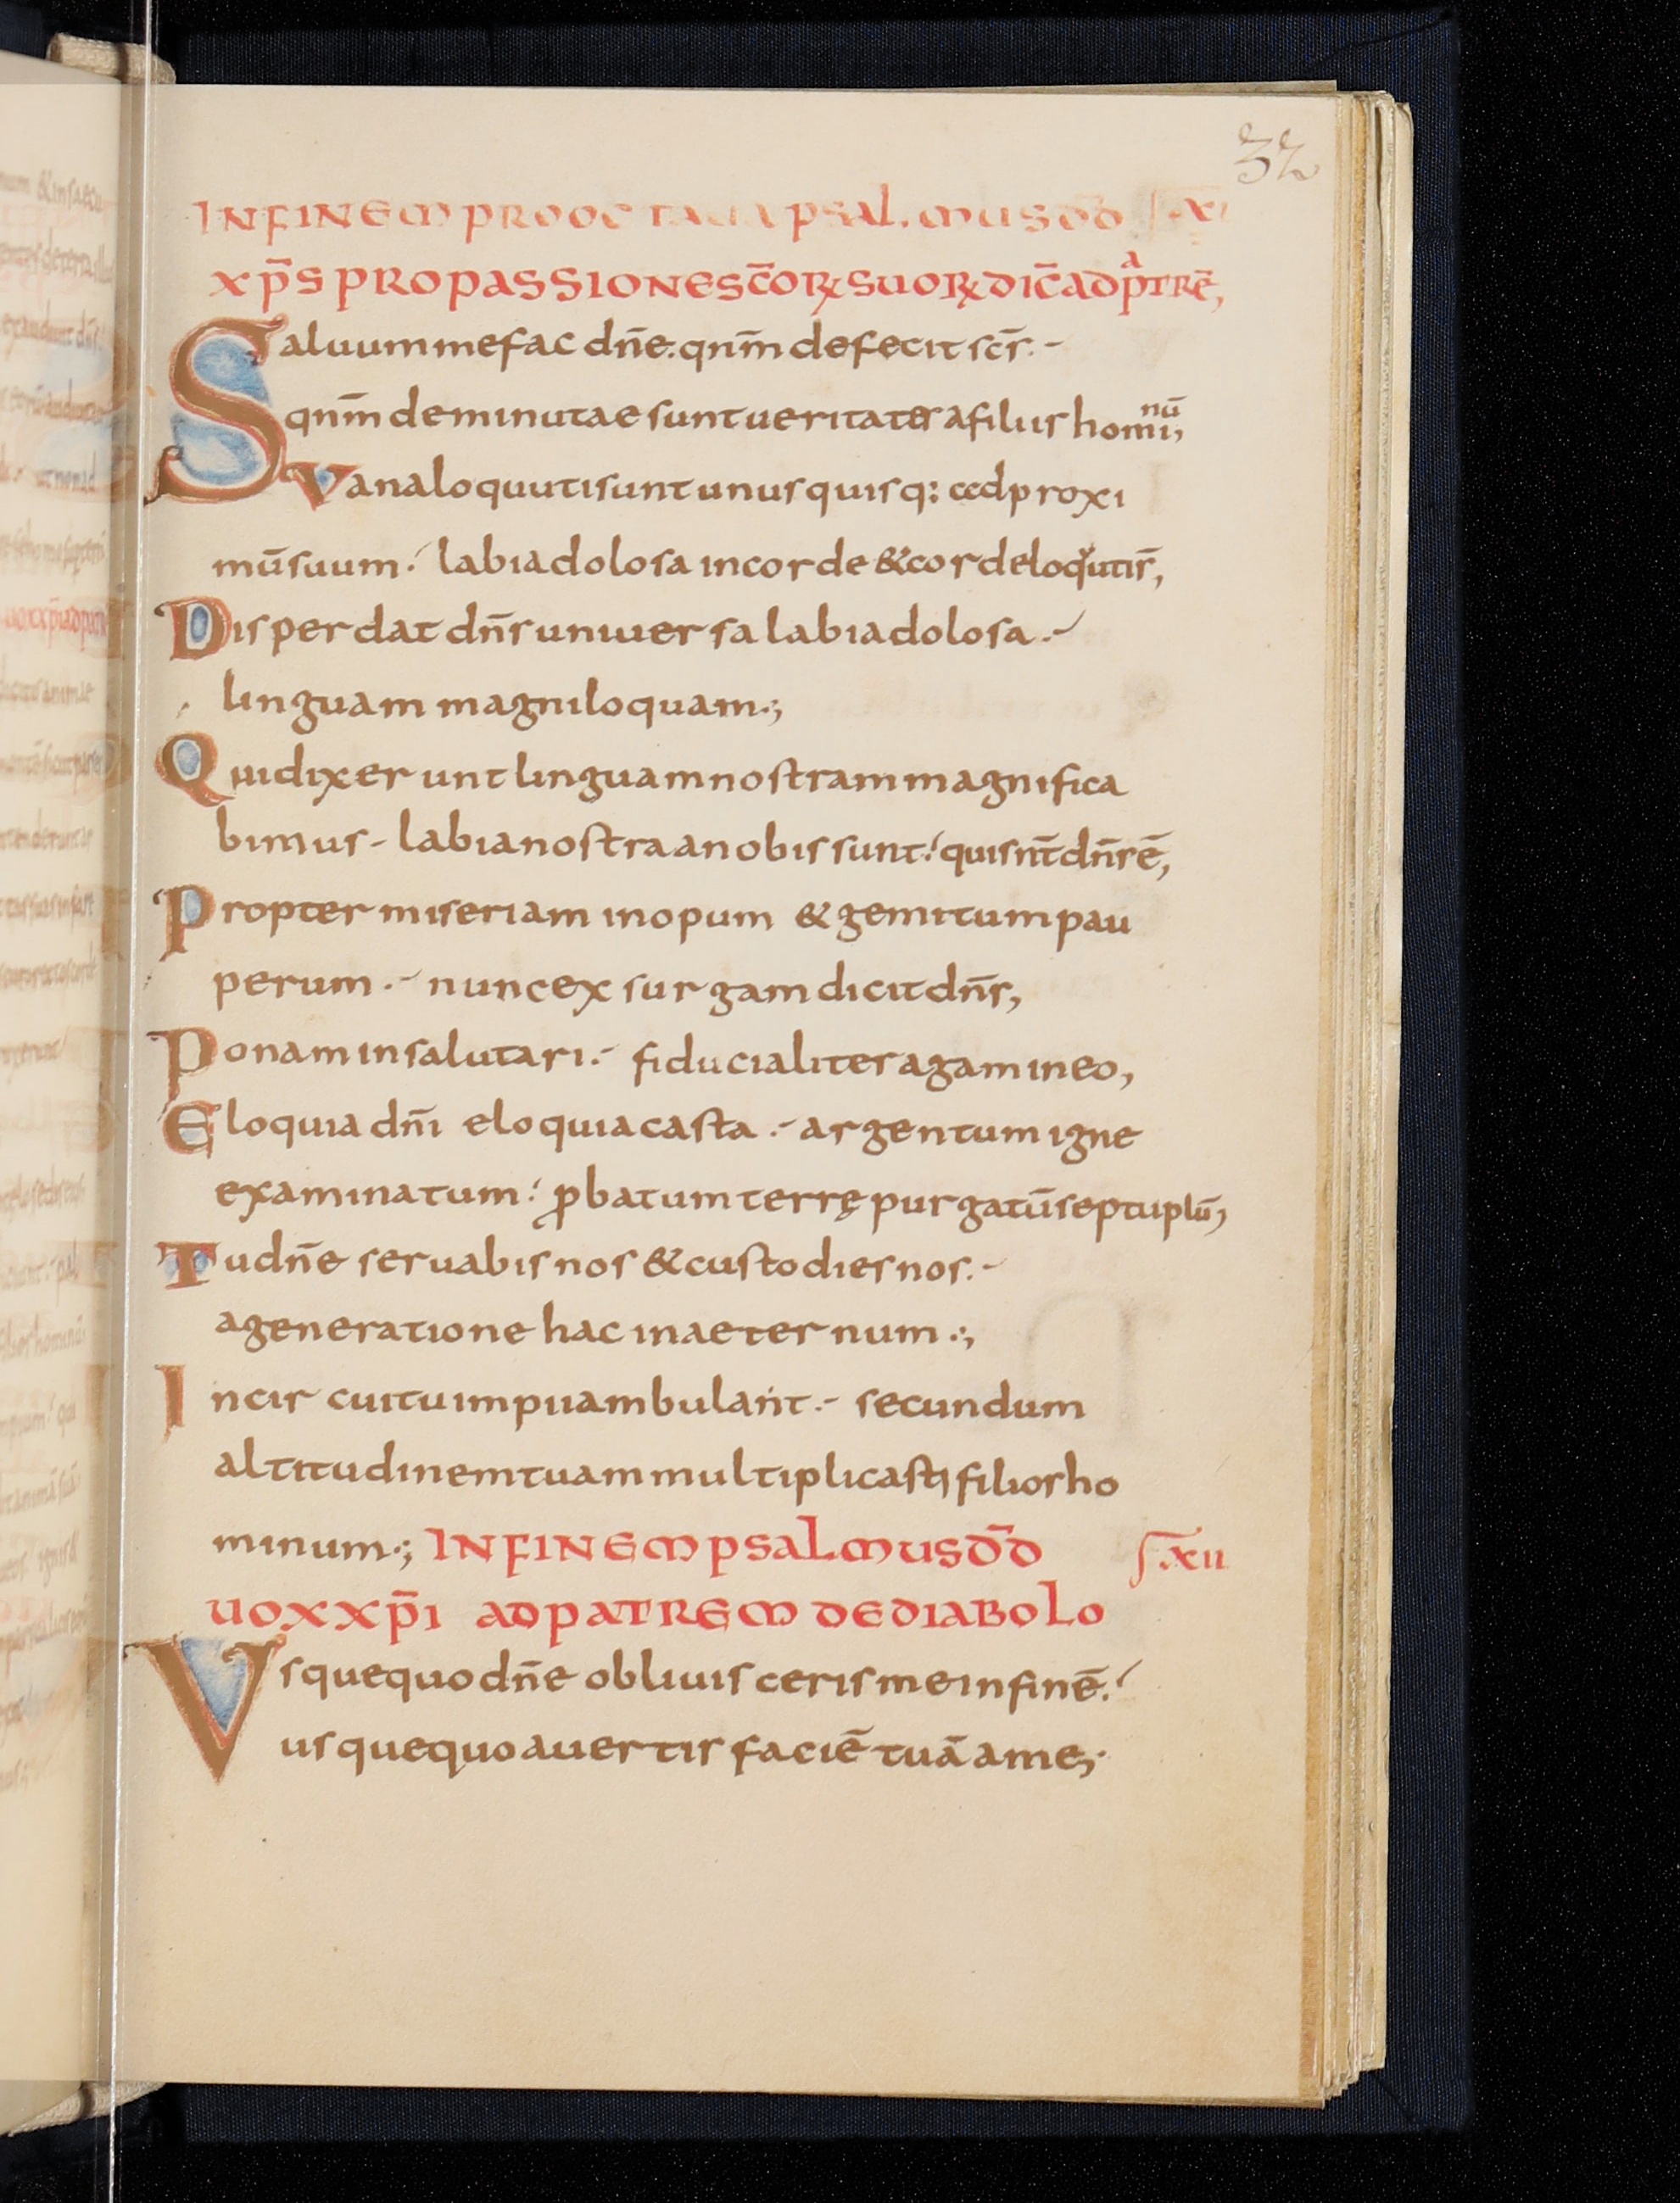 32
INFINEM PRO OCTAUA PSALMUS DD̄ ⸍XI
XP̄S PRO PASSIONE SC̄ORꝜ SUORꝜ DIC̄ AD PATRĒ,
Saluum me fac dn̄e. qnm̄ defecit scs̄.-
qnm̄ deminutae sunt ueritates a filiis hominū,
Vana loquuti sunt unusquisq: ad proxi
mū suum.⸍ labia dolosa in corde & corde loquti s̄,
Disperdat dn̄s uniuersa labia dolosa.-
linguam magniloquam.;
Qui dixerunt linguam nostram magnifica
bimus- labia nostra a nobis sunt.⸍ quis n̄t dn̄s ē,
Propter miseriam inopum & gemitum pau
perum.- nunc exsurgam dicit dn̄s,
Ponam in salutari.- fiducialiter agam in eo,
Eloquia dn̄i eloquia casta.- argentum igne
examinatum.⸍ ꝓbatum terrę purgatū septuplū,
Tu dn̄e seruabis nos & custodies nos.-
a generatione hac in aeternum.;
In circuitu impii ambulant.- secundum
altitudinem tuam multiplicasti filios ho
minum.; IN FINEM PSALMUS DD̄ ⸍XII
UOX XP̄I AD PATREM DE DIABOLO
Vsquequo dn̄e obliuisceris me in finē.⸍
usquequo auertis faciē tuā a me;